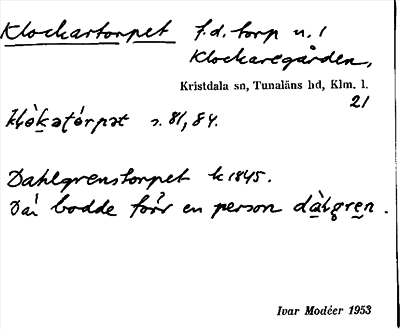 Klockartorpet f.d. torp u. 1
Klockaregården,
Kristdala sn, Tunaläns hd, Klm. l.
21
s. 81, 84.
Dahlgrenstorpet k 1845.
bodde förr en person dàlgren.
Ivar Modéer 1953